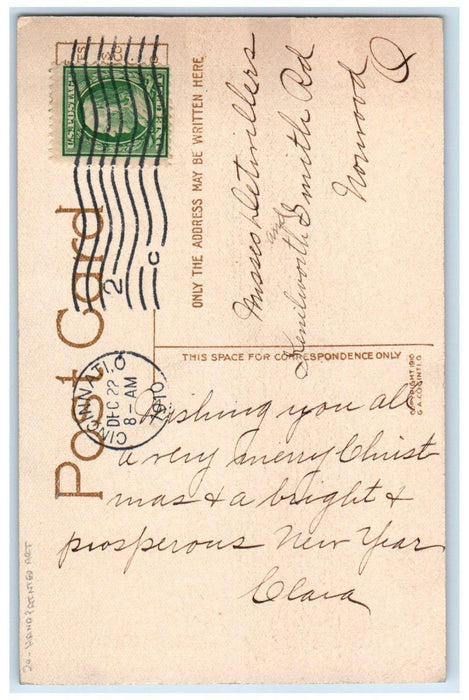 Post Card
U.S. POSTAGE
CINCINNATI, O.
DEC 22
8-AM
1910
2
C
ONLY THE ADDRESS MAY BE WRITTEN HERE
Misses Detwillers
Kenilworth and Smith Rd
Norwood
O
THIS SPACE FOR CORRESPONDENCE ONLY
COPYRIGHT 1910
Wishing you all
a very merry Christ
mas & a bright &
prosperous New Year
Clara
20- HAND PAINTED ART